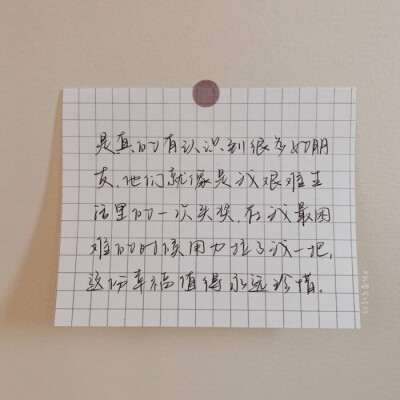 是真的有认识到很多好朋
友，他们就像是我艰难生
活里的一次头奖，在我最困
难的时候用力拉了我一把，
这份幸福值得永远珍惜。